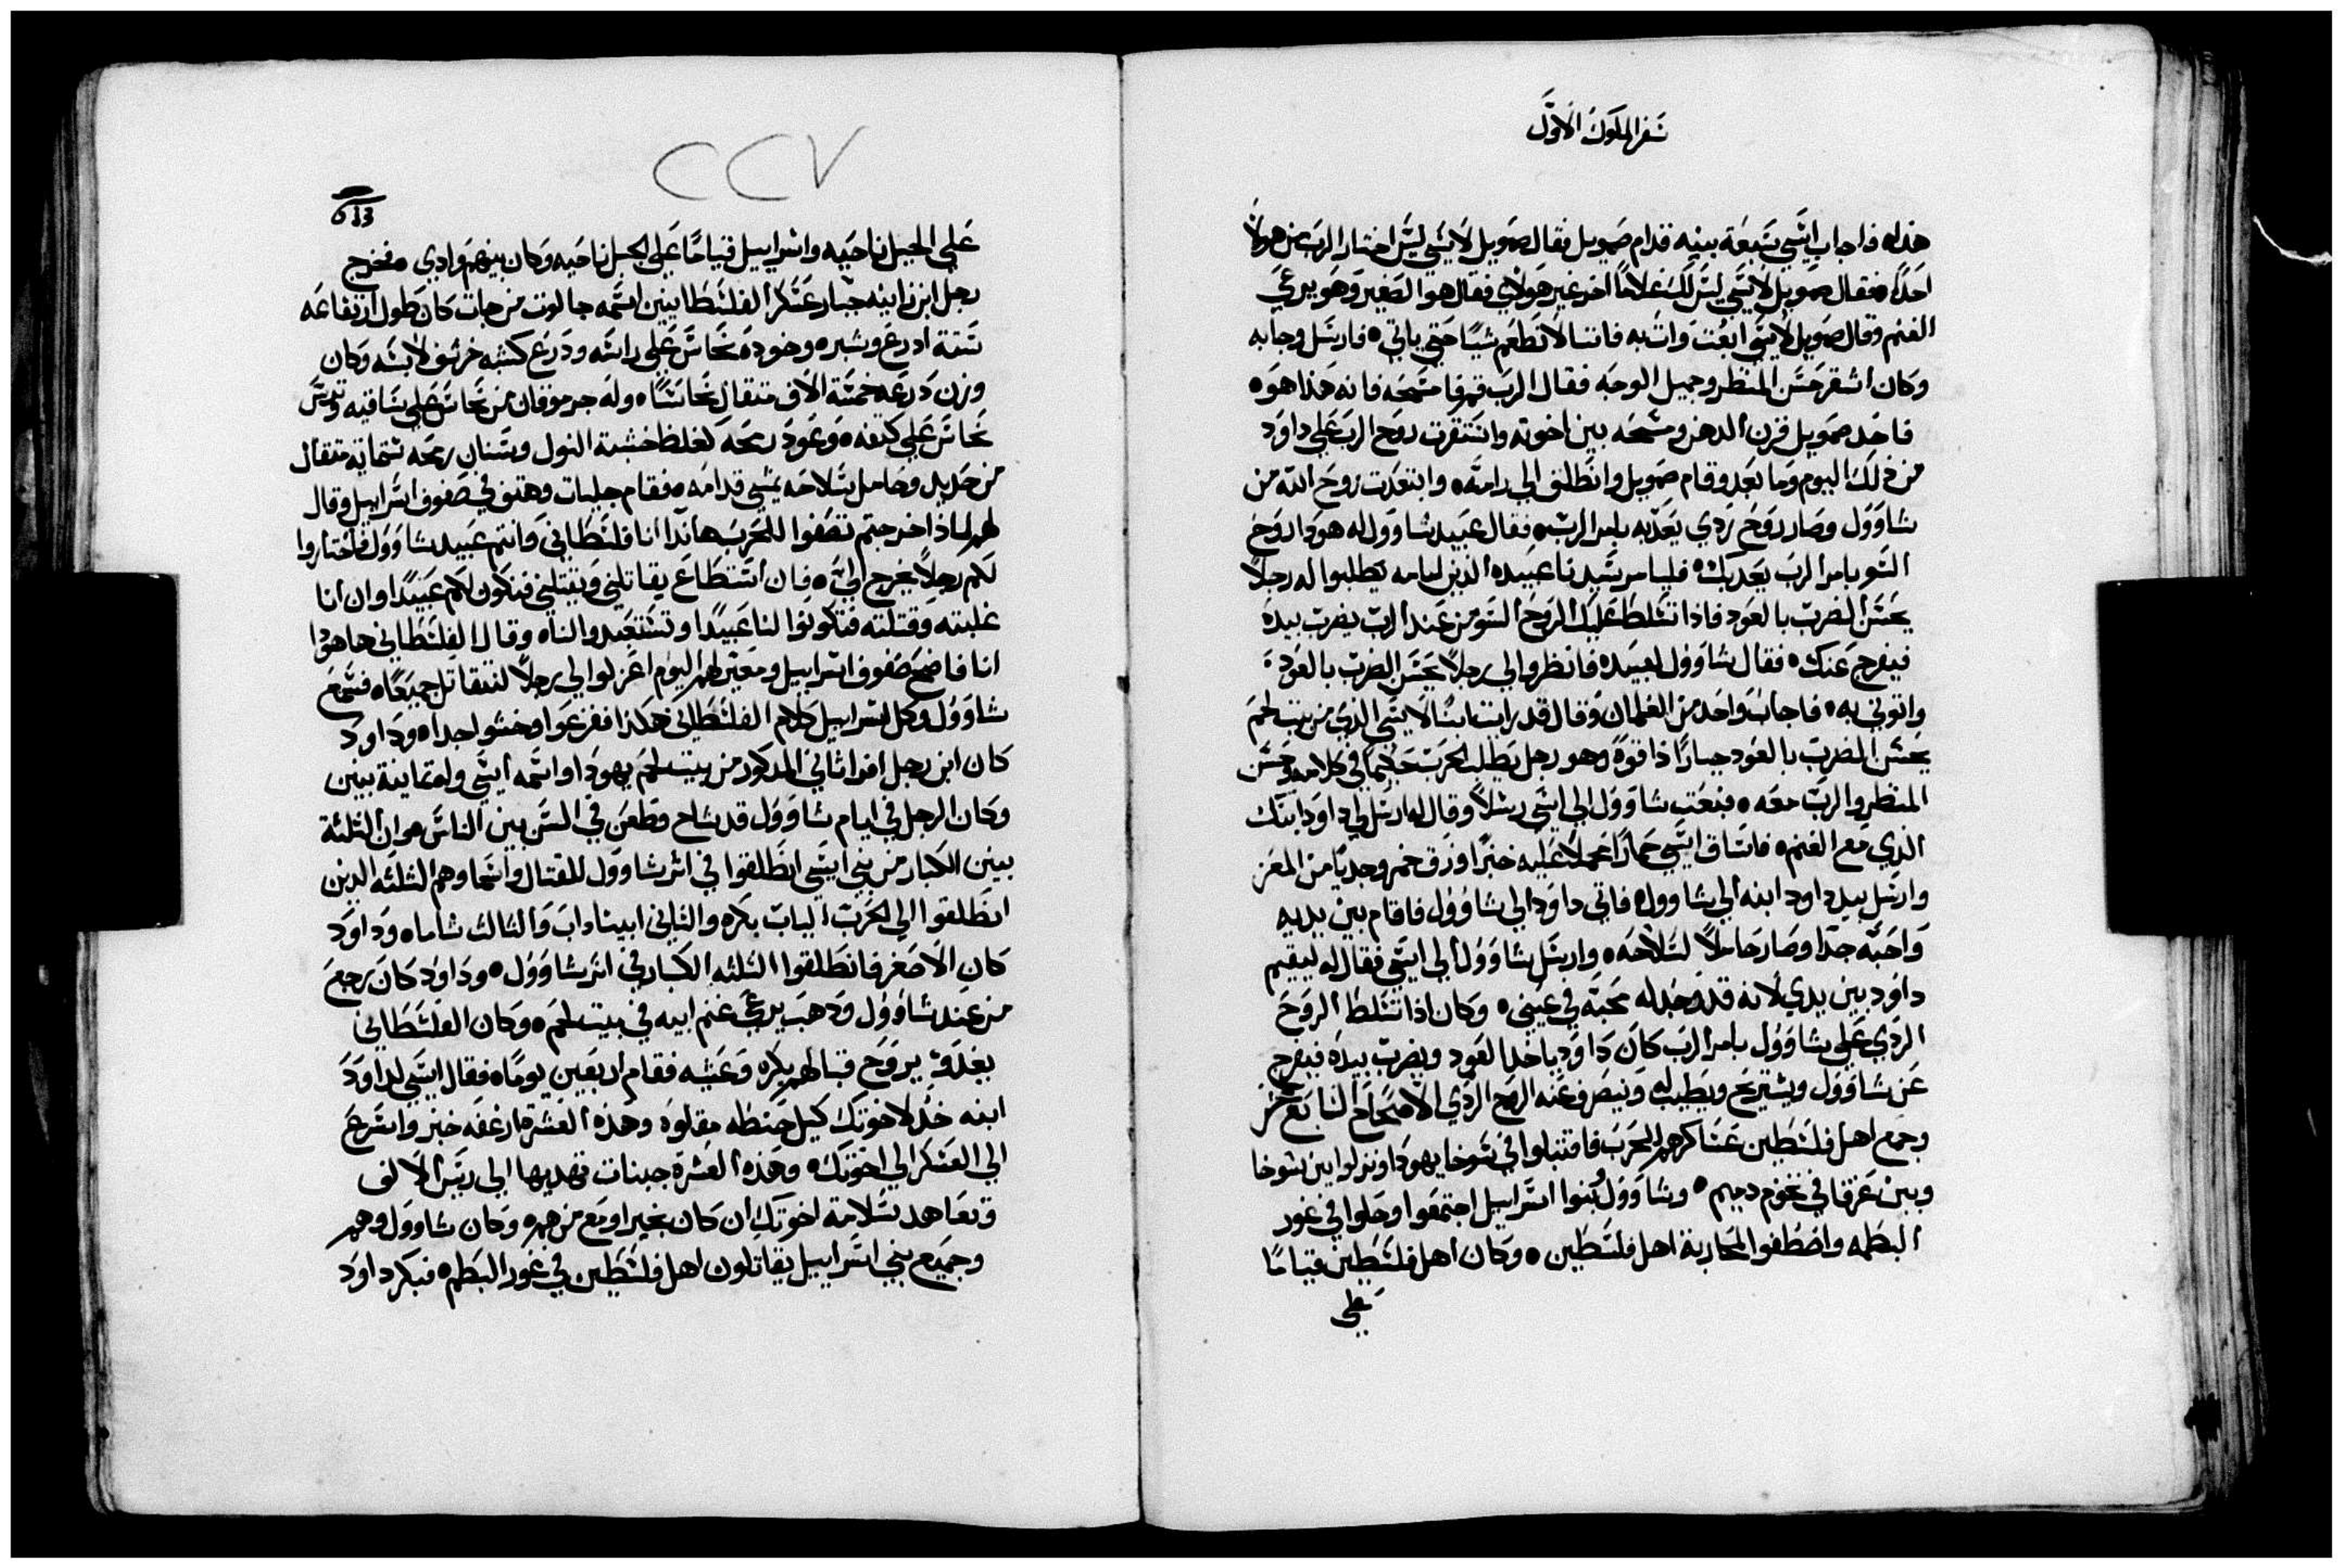 سفر الملوك الاول
هذا٥ فاجاب ايسي سبعة بنيه قدام صمويل فقال صمويل لايسي ليس اختار الرب من هولا
احدًا٥ فقال صمويل لايسي ليس لك غلامًا اخر غير هولاي فقال هوا الصغير وهو يرعي
الغنم وقال صمويل لايسي ابعت وات به فاننا لا نطعم شيًا حتي ياتي٥ فارسل وجا به
وكان اشقر حسن المنظر وجميل الوجه فقال الرب قم فامسحه فانه هذا هو٥
فاخد صمويل قرن الدهن ومسحه بين اخوته واستقرت روح الرب علي داود
من ذلك اليوم وما بعد وقام صمويل وانطلق الي رامة٥ وابتعدت روح الله من
شاوول وصار روح ردي يعذبه بامر الرب٥ فقال عبيد شاوول له هودا روح
السو بامر الرب يعذبك٥ فليامر سيدنا عبيده الذين امامه يطلبوا له رجلاً
يحسن الضرب بالعود فاذا تسلط عليك الروح السو من عند الرب يضرب بيده
فيفرج عنك٥ فقال شاوول لعبيده فانظروا لي رجلاً يحسن الضرب بالعود
واتوني به٥ فاجاب واحد من الغلمان وقال قد رايت ابنًا لايسي الذي من بيت لحم
يحسن الضرب بالعود جبارًا ذا قوة وهو رجل يطلب الحرب حكيمًا في كلامه وحسن
المنظر والرب معه٥ فبعت شاوول الي ايسي رسلاً وقال له ارسل لي داود ابنك
الذي مع الغنم٥ فاساق ايسي حمارًا محملا عليه خبزًا وزق خمر وجديًا من المعز
وارسل بيد داود ابنه الي شاوول٥ فاتي داود الي شاوول فاقام بين يديه
واحبه جدًا وصار حاملاً لسلاحه٥ وارسل شاوول الي ايسي فقال له ليقيم
داود بين يدي لانه قد وجد له محبة في عيني٥ وكان اذا تسلط الروح
الردي علي شاوول بامر الرب كان داود ياخد العود ويضرب بيده فيفرج
عن شاوول ويستريح ويطيب له وينصرف عنه الروح الردي الاصحاح السابع عشر
وجمع اهل فلسطين عساكرهم للحرب فاقتبلوا في سوخا يهودا ونزلوا بين سوخا
وبين عزقا في تخوم دميم٥ وشاوول وبنوا اسراييل اجتمعوا وحلوا في غور
البطمه واصطفوا لمحاربة اهل فلسطين٥ وكان اهل فلسطين قيامًا
علي
٢٢٧
علي الجبل ناحيه واسراييل قيامًا علي الجبل ناحيه وكان بينهم وادي٥ فخرج
رجل ابن زانيه جبار عسكر الفلسطانيين اسمه جالوت من جات كان طول ارتفاعه
ستة ادرع وشبر٥ وخوده نحاس علي راسه ودرع كشبه خرشف لابسه وكان
وزن درعه خمسة الاف متقال نحاسًا٥ وله جرموقان من نحاس علي ساقيه وترس
نحاس علي كتفه٥ وعود رمحه كغلظ خشبة النول وسنان رمحه ستماية متقال
من حديد وحامل سلاحه يمشي قدامه٥ فقام جليات وهتف في صفوف اسراييل وقال
لهم لماذا خرجتم تصفوا للحرب هاندا انا فلسطاني وانتم عبيد شاوول فاختاروا
لكم رجلاً يخرج الي٥ فان استطاع يقاتلني ويقتلني فنكون لكم عبيدًا وان انا
غلبته وقتلته فتكونوا لنا عبيدًا وتستعبدوا لنا٥ وقال الفلسطاني ها هودا
انا فاضح صفوف اسراييل ومعيرهم اليوم اعزلوا لي رجلاً لنتقاتل جميعًا٥ فسمع
شاوول وكل اسراييل كلام الفلسطاني هكذا ففزعوا وخشوا جدا٥ وداود
كان ابن رجل افراثاني المدكور من بيت لحم يهودا واسمه ايسي وله تماينة بنين
وكان الرجل في ايام شاوول قد شاخ وطعن في السن بين الناس٥ وان الثلثة
بنين الكبار من بني ايسي انطلقوا في اثر شاوول للقتال واسماوهم الثلثه الدين
انطلقوا الي الحرب الياب بكره والثاني ابيناداب والثالث شاما٥ وداود
كان الاصغر فانطلقوا الثلثه الكبار في اثر شاوول٥ وداود كان رجع
من عند شاوول ودهب يرعي غنم ابيه في بيت لحم٥ وكان الفلسطاني
يغدو يروح قبالهم بكره وعشيه فقام اربعين يومًا٥ فقال ايسي لداود
ابنه خد لاخوتك كيل حنطه مقلوه وهذه العشرة ارغفه خبز واسرع
الي العسكر الي اخوتك٥ وهذه العشرة جبنات تهديها الي ريس الالف
وتعاهد سلامة اخوتك ان كان بخير او مع من هم٥ وكان شاوول وهم
وجميع بني اسراييل يقاتلون اهل فلسطين في غور البطم٥ فبكر داود